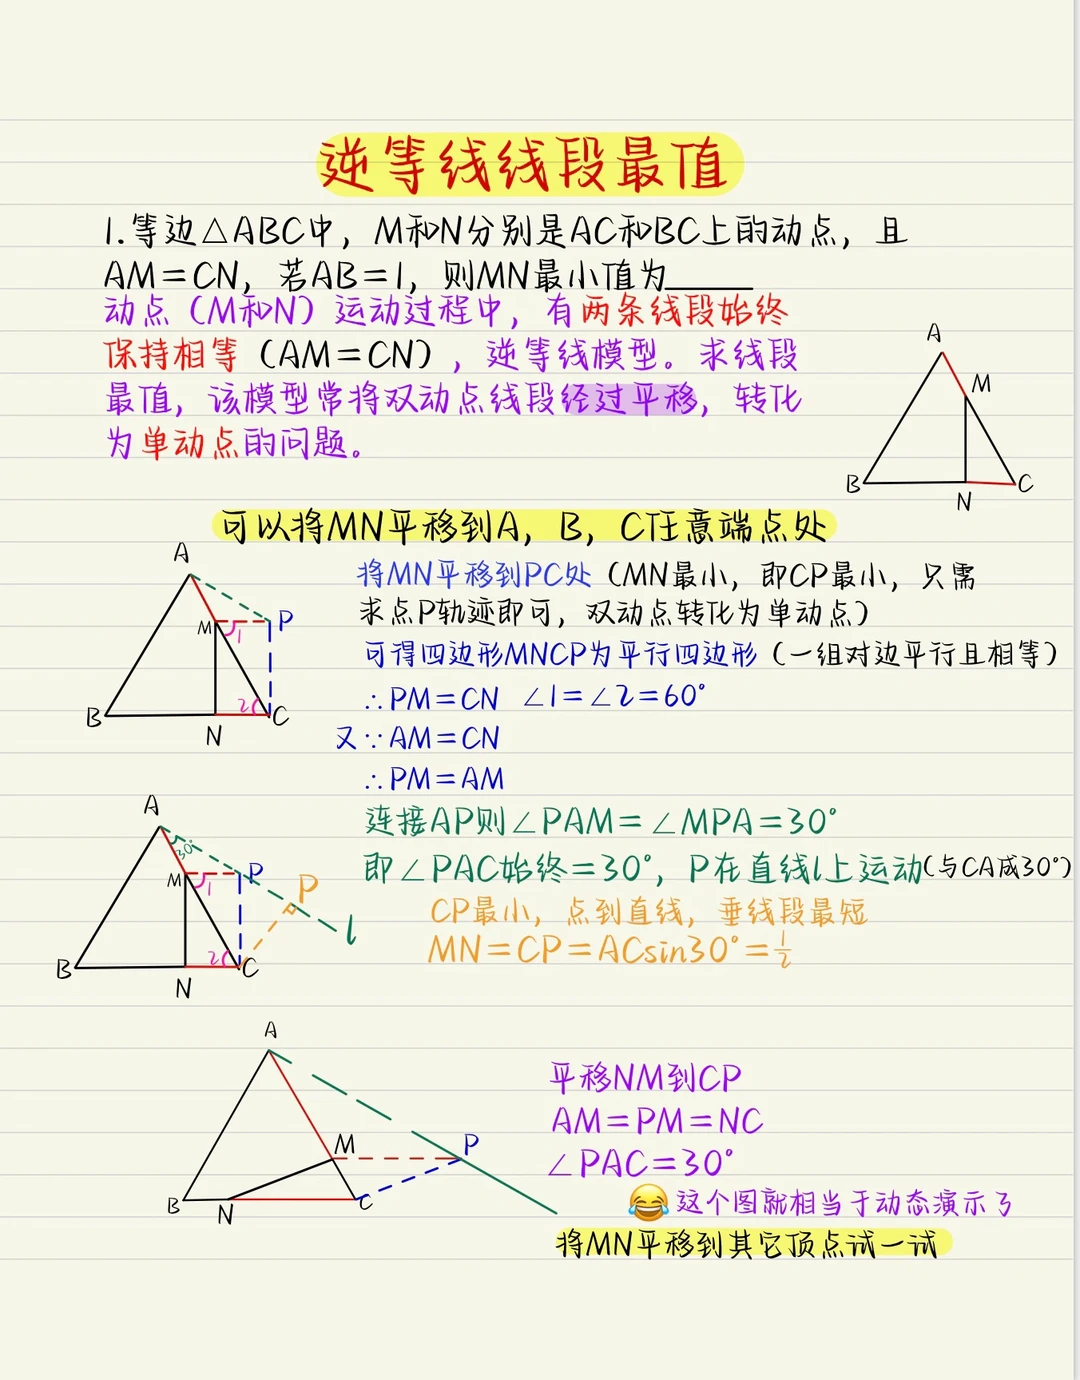 逆等线线段最值
1.等边△ABC中，M和N分别是AC和BC上的动点，且
AM=CN，若AB=1，则MN最小值为____
动点（M和N）运动过程中，有两条线段始终
保持相等（AM=CN），逆等线模型。求线段
最值，该模型常将双动点线段经过平移，转化
为单动点的问题。
A
M
B
N
C
可以将MN平移到A，B，C任意端点处
A
M
1
P
B
N
2
C
将MN平移到PC处（MN最小，即CP最小，只需
求点P轨迹即可，双动点转化为单动点）
可得四边形MNCP为平行四边形（一组对边平行且相等）
∴PM=CN ∠1=∠2=60°
又∵AM=CN
∴PM=AM
连接AP则∠PAM=∠MPA=30°
即∠PAC始终=30°，P在直线l上运动(与CA成30°)
CP最小，点到直线，垂线段最短
MN=CP=ACsin30°=1/2
A
30°
M
1
P
P
l
B
N
2
C
A
M
P
B
N
C
平移NM到CP
AM=PM=NC
∠PAC=30°
😂这个图就相当于动态演示了
将MN平移到其它顶点试一试